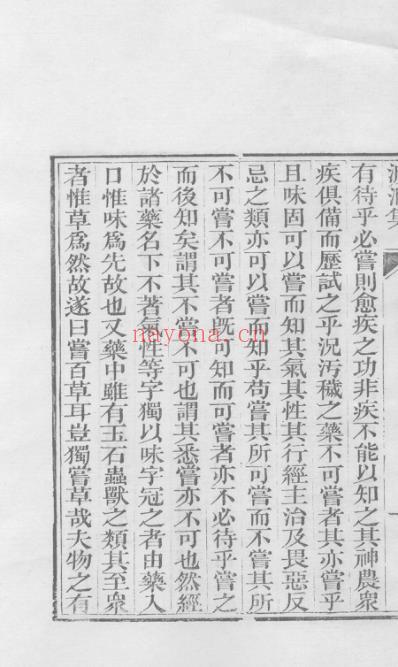 溯洄集
有待乎必嘗則愈疾之功非疾不能以知之其神農衆
疾俱備而歷試之乎況污穢之藥不可嘗者其亦嘗乎
且味固可以嘗而知其氣其性其行經主治及畏惡反
忌之類亦可以嘗而知乎苟嘗其所可嘗而不嘗其所
不可嘗不可嘗者既可知而可嘗者亦不必待乎嘗之
而後知矣謂其不嘗不可也謂其悉嘗亦不可也然經
於諸藥名下不著氣性等字獨以味字冠之者由藥入
口惟味爲先故也又藥中雖有玉石蟲獸之類其至衆
者惟草爲然故遂曰嘗百草耳豈獨嘗草哉夫物之有
nayona.cn